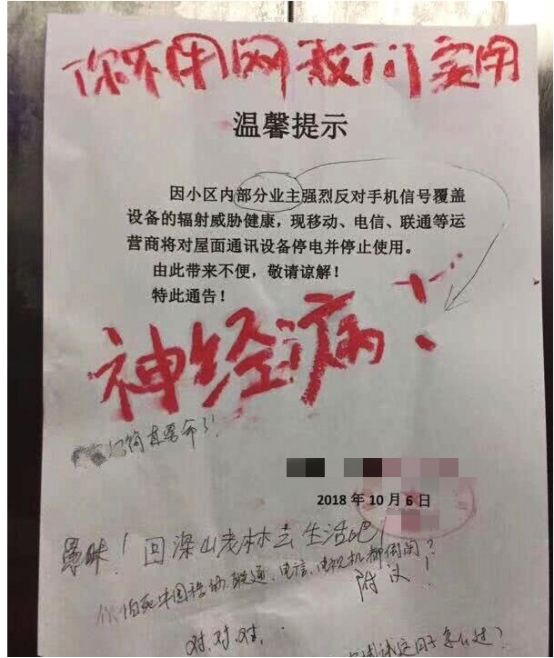 你不用网我们实用
温馨提示
因小区内部分业主强烈反对手机信号覆盖
设备的辐射威胁健康，现移动、电信、联通等运
营商将对屋面通讯设备停电并停止使用。
由此带来不便，敬请谅解！
特此通告！
神经病！
简直要命了！
2018年10月6日
愚昧！回深山老林去生活吧！
你怕死中国移动、联通、电信、电视机都倒闭？
附议！
对、对、对、